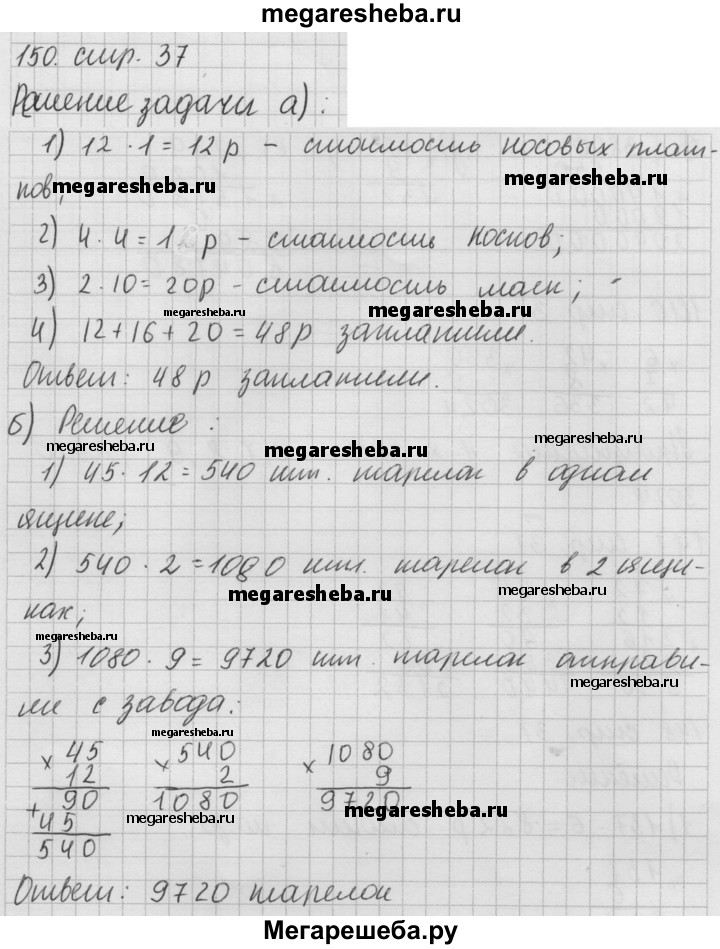 megaresheba.ru
150. стр. 37
Решение задачи а):
1) 12 · 1 = 12 р – стоимость носовых плат-
megaresheba.ru
ков; megaresheba.ru
2) 4 · 4 = 1 р – стоимость носков;
3) 2 · 10 = 20р – стоимость маек;
megaresheba.ru megaresheba.ru
4) 12 + 16 + 20 = 48 р заплатили.
Ответ: 48 р заплатили.
б) Решение:
megaresheba.ru megaresheba.ru megaresheba.ru
1) 45 · 12 = 540 шт. тарелок в одном
ящике;
2) 540 · 2 = 1080 шт. тарелок в 2 ящи-
megaresheba.ru megaresheba.ru
ках;
megaresheba.ru
3) 1080 · 9 = 9720 шт. тарелок отправи-
megaresheba.ru
ли с завода:
megaresheba.ru
× 45 × 540 × 1080
12 2 9
90 1080 9720
megaresheba.ru megaresheba.ru
+ 45
540
Ответ: 9720 тарелок
Мегарешеба.ру